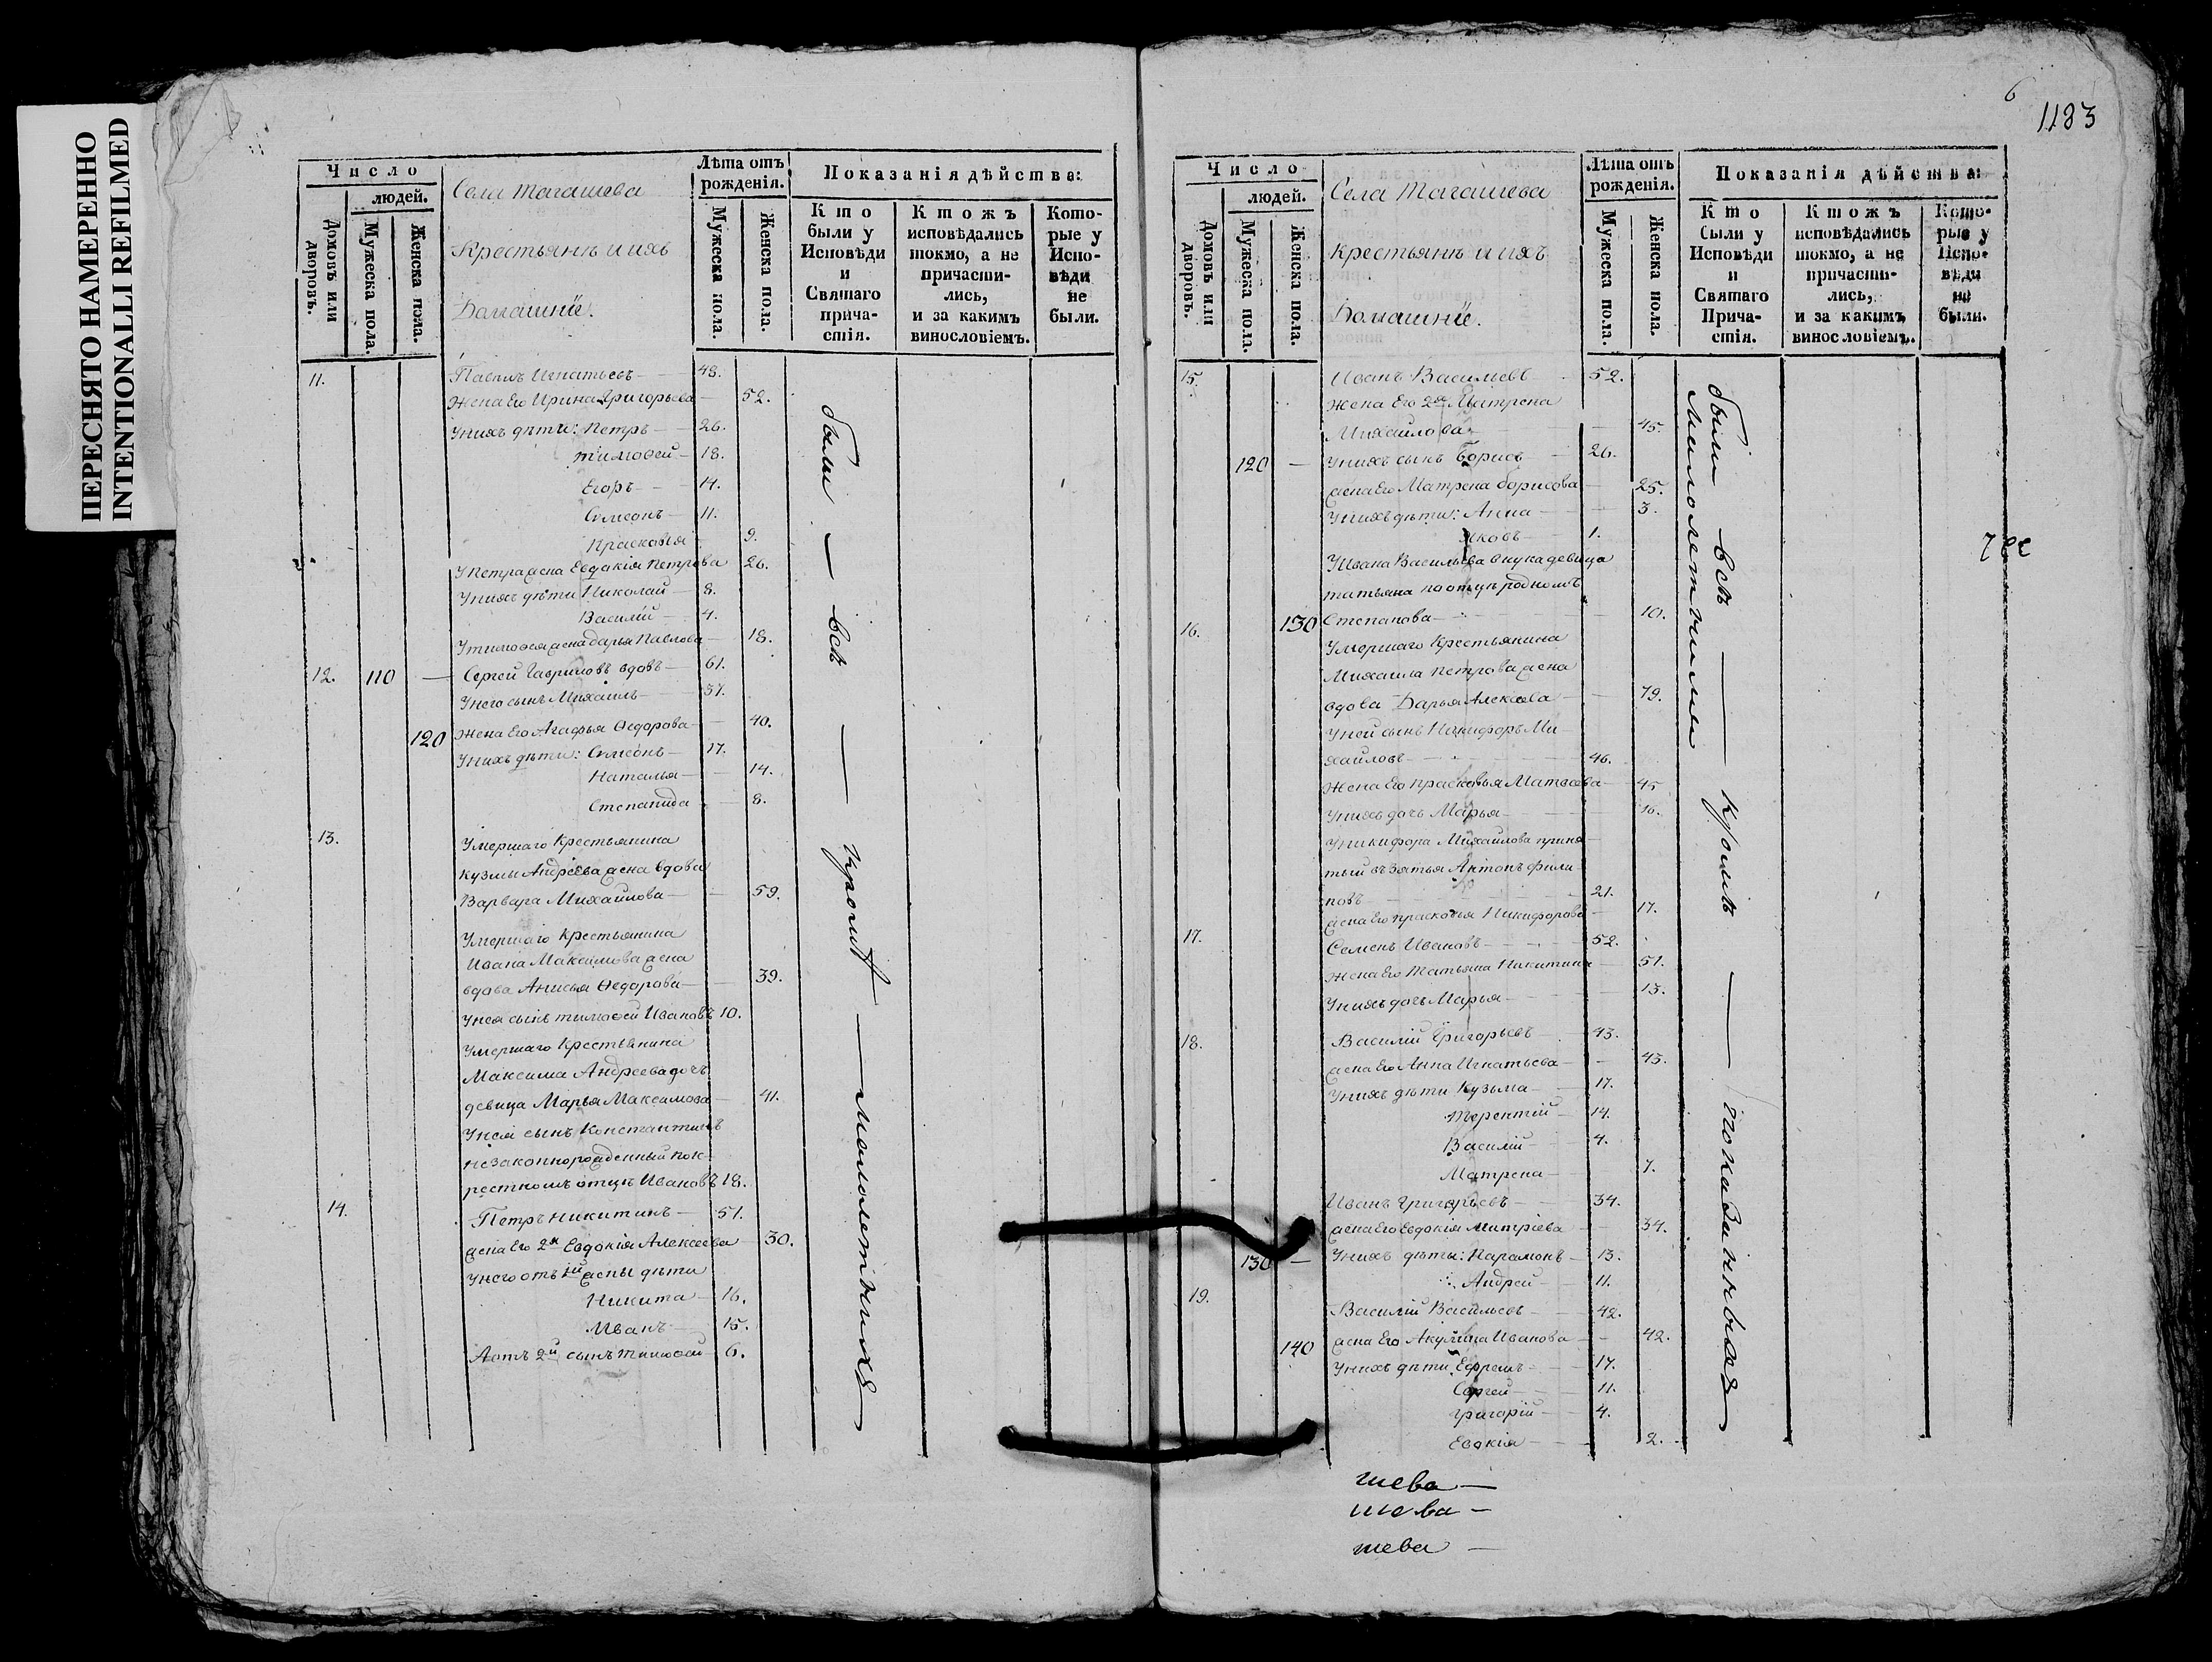 ПЕРЕСНЯТО НАМЕРЕННО
INTENTIONALLI REFILMED
Число
людей.
Домовъ или дворовъ.
Мужеска пола.
Женска пола.
Села Тагашева
Крестьянѣ и ихъ
Домашніе.
Лѣта отъ рожденія.
Мужеска пола.
Женска пола.
Показанія дѣйства:
Кто были у Исповѣди и Святаго причастія.
Ктожъ исповѣдались токмо, а не причастились, и за какимъ винословіемъ.
Которые у Исповѣди не были.
11. Павелъ Игнатьевъ — 48.
Жена Его Ирина Григорьева — 52.
У нихъ дѣти: Петръ — 26.
Тимоѳей — 18.
Егоръ — 14.
Симеонъ — 11.
Прасковья 9.
У Петра жена Евдокія Петрова 26.
У нихъ дѣти Николай — 8.
Василій — 4.
У Тимоѳея жена Дарья Павлова — 18.
12. 110 — Сергей Гавриловъ вдовъ — 61.
У него сынъ Михаилъ — 37.
Жена Его Агафья Ѳедорова — 40.
120 У нихъ дѣти: Симеонъ — 17.
Наталья — 14.
Степанида — 8.
13. Умершаго Крестьянина
Кузмы Андрѣева жена вдова
Варвара Михайлова — 59.
Умершаго Крестьянина
Ивана Максимова жена
вдова Анисья Ѳедорова — 39.
У нея сынъ Тимоѳей Ивановъ 10.
Умершаго Крестьянина
Максима Андреева дочь
девица Марья Максимова — 41.
У нея сынъ Константинъ
незаконнорожденный по к-
рестномъ отцѣ Ивановъ 18.
14. Петръ Никитинъ — 51.
жена Его 2я Евдокія Алексеева — 30.
У него отъ 1й жены дѣти
Никита — 16.
Иванъ — 15.
А отъ 2й сынъ Тимоѳей — 6.
были — всѣ — кромѣ — малолетнихъ
6
1183
Число
людей.
Домовъ или дворовъ.
Мужеска пола.
Женска пола.
Села Тагашева
Крестьянѣ и ихъ
Домашніе.
Лѣта отъ рожденія.
Мужеска пола.
Женска пола.
Показанія дѣйства:
Кто были у Исповѣди и Святаго Причастія.
Ктожъ исповѣдались токмо, а не причастились, и за какимъ винословіемъ.
Которые у Исповѣди не были.
15. Иванъ Васильевъ — 52.
Жена Его 2я Матрена
Михайлова — 45.
120 — У нихъ сынъ Борисъ — 26.
жена Его Матрена Борисова — 25.
У нихъ дѣти: Анна — 3.
Яковъ — 1.
У Ивана Васильева внука девица
Татьяна по отцѣ родномъ
130 Степанова — 10.
16. Умершаго Крестьянина
Михаила Петрова жена
вдова Дарья Алексева — 79.
У ней сынъ Никифоръ Ми-
хайловъ — 46.
Жена Его Прасковья Матвеева — 45
У нихъ дочь Марья — 16.
У Никифора Михайлова приня-
тый въ зятья Антонъ Фили-
повъ — 21.
жена Его Прасковья Никифорова — 17.
17. Семенъ Ивановъ — 52.
Жена Его Татьяна Никитина — 51.
У нихъ дочь Марья — 13.
18. Василій Григорьевъ — 43.
жена Его Анна Игнатьева — 43.
У нихъ дѣти Кузьма — 17.
Терентій — 14.
Василій — 4.
Матрена — 7.
Иванъ Григорьевъ — 34.
жена Его Евдокія Митріева — 34.
130 — У нихъ дѣти: Парамонъ — 13.
Андрей — 11.
19. Василій Васильевъ — 42.
140 жена Его Акулина Иванова — 42.
У нихъ дѣти Ефремъ — 17.
Сергей — 11.
Григорій — 4.
Евдокія — 2.
были — всѣ — кромѣ —
малолетними
шева —
шева —
шева —